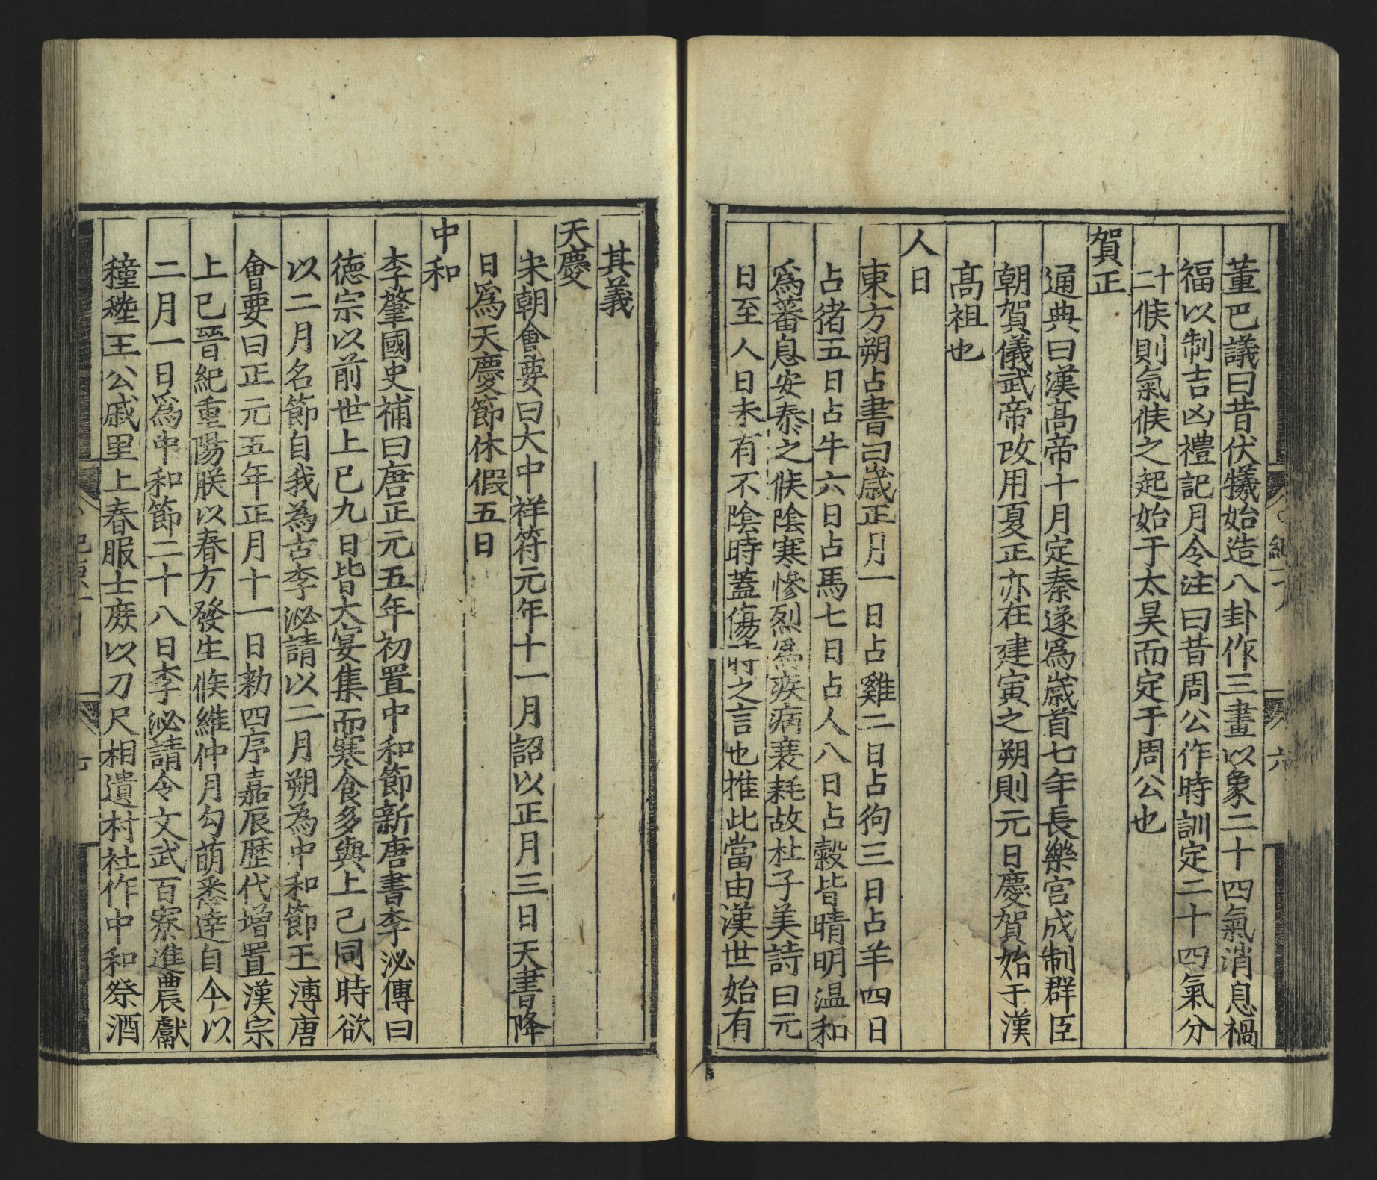 董巴議曰昔伏犧始造八卦作三畫以象二十四氣消息禍
福以制吉凶禮記月令注曰昔周公作時訓定二十四氣分
十二候則氣候之起始于太昊而定于周公也
賀正
通典曰漢高帝十月定秦遂為歲首七年長樂宮成制群臣
朝賀儀武帝改用夏正亦在建寅之朔則元日慶賀始于漢
高祖也
人日
東方朔占書曰歲正月一日占雞二日占狗三日占羊四日
占猪五日占牛六日占馬七日占人八日占穀皆晴明温和
為蕃息安泰之候陰寒慘烈為疾病衰耗故杜子美詩曰元
日至人日未有不陰時蓋傷時之言也推此當由漢世始有
其義
天慶
宋朝會要曰大中祥符元年十一月詔以正月三日天書降
日為天慶節休假五日
中和
李肇國史補曰唐正元五年初置中和節新唐書李泌傳曰
德宗以前世上巳九日皆大宴集而寒食多與上巳同時欲
以二月名節自我為古李泌請以二月朔為中和節王溥唐
會要曰正元五年正月十一日勑四序嘉辰歷代增置漢宗
上巳晉紀重陽朕以春方發生候維仲月勾萌悉達自今以
二月一日為中和節二十八日李泌請令文武百寮進農獻
穜稑王公戚里上春服士庶以刀尺相遺村社作中和祭酒
六